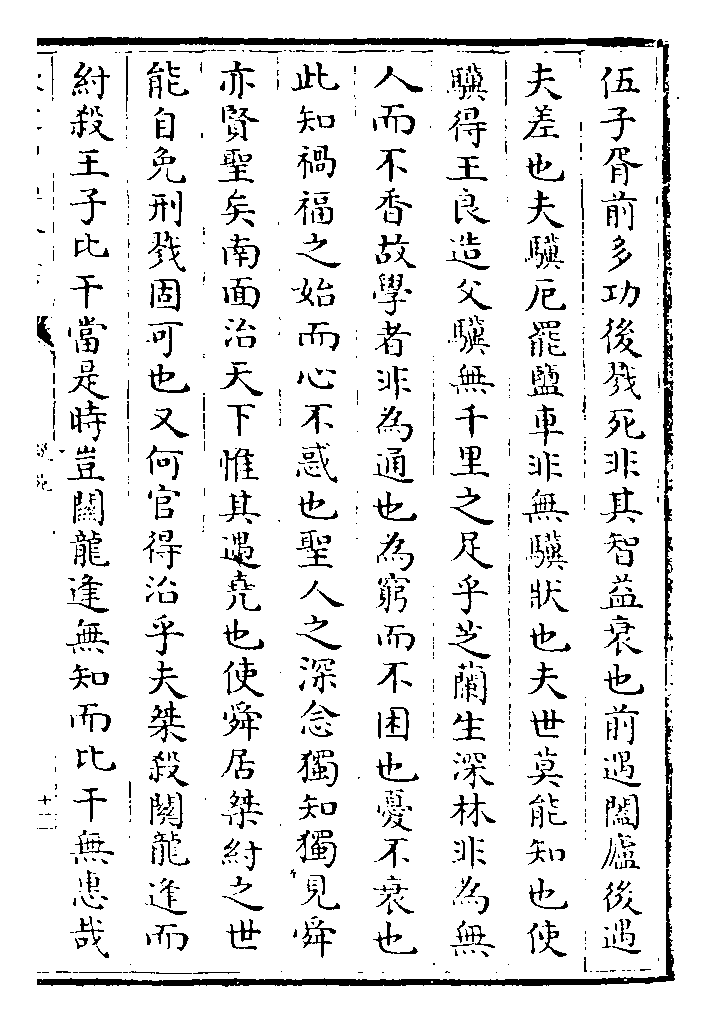 伍子胥前多功後戮死非其智益衰也前遇闔廬後遇
夫差也夫驥厄罷鹽車非無驥狀也夫世莫能知也使
驥得王良造父驥無千里之足乎芝蘭生深林非為無
人而不香故學者非為通也為窮而不困也憂不衰也
此知禍福之始而心不惑也聖人之深念獨知獨見舜
亦賢聖矣南面治天下惟其遇堯也使舜居桀紂之世
能自免刑戮固可也又何官得治乎夫桀殺關龍逢而
紂殺王子比干當是時豈關龍逢無知而比干無恵哉